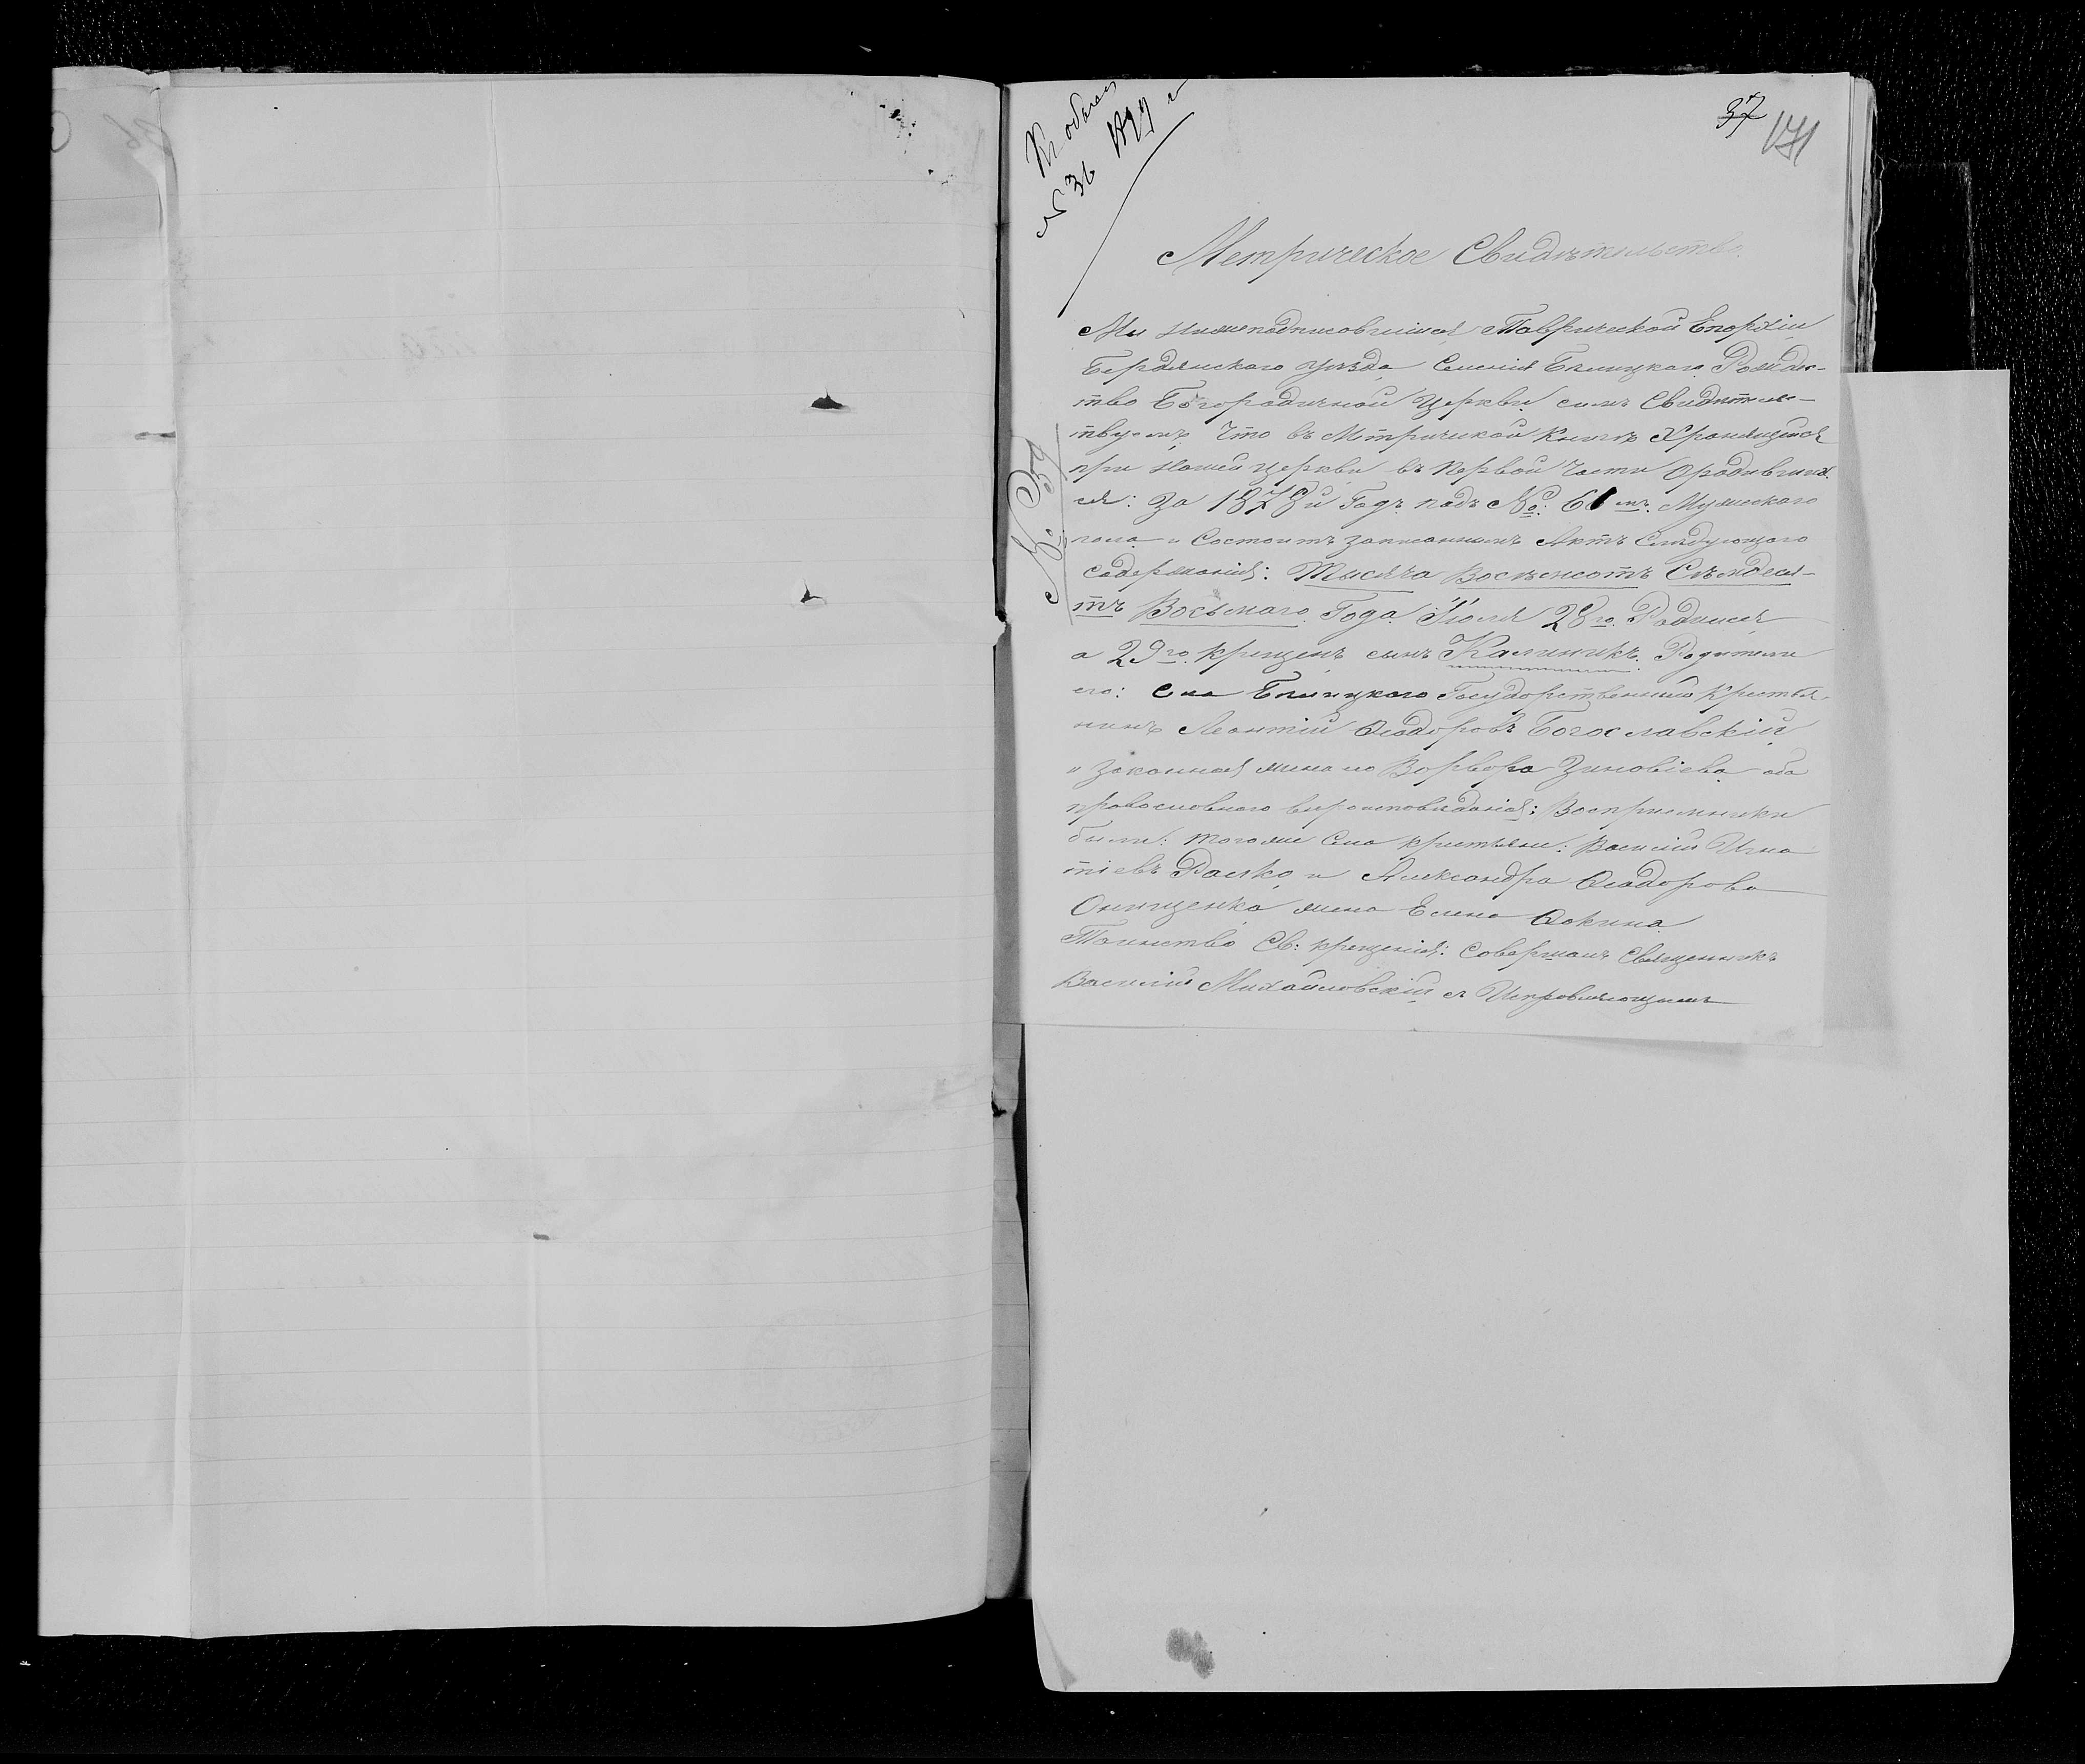 К обыску
№ 36 1899 г
37
171
№ 39
Метрическое Свидѣтельство.
Мы нижеподписовшиіся Таврической Епархіи
Бердянскаго уѣзда Селенія Бѣлицкаго Рождес-
тво Богородичной Церкви симъ Свидѣтель-
твуемъ что въ Метрической Книгѣ Хранящися
при нашей церкви въ первой части о родивших
ся: За 1878й Годъ подъ №: 61мъ. Мужескаго
пола и Состоитъ записаннымъ Актъ Слѣдующаго
содержанія: Тысяча Восѣмсотъ Сѣмдеся-
тъ Восьмаго Года Іюля 28го Родился
а 29го крещенъ сынъ Калиникъ. Родители
его: Села Бѣлицкаго Государственный Крестья
нинъ Леонтій Ѳеодоровъ Богославскій
и законная жена ею Варвара Зиновіева оба
православнаго вѣроисповѣданія: Восприемники
были: тогоже Села крестьяне: Василий Игна
тіевъ Расько и Александра Ѳеодорова
Онищенка жена Елена Ѳокина
Таинство Св: крещенія: совершалъ Священникъ
Василий Михайловскій съ Исправляющимъ